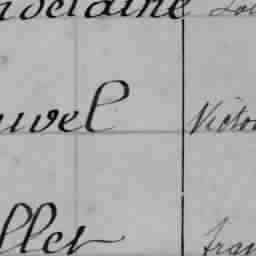 ndelaine Lou
uvel Victo
llet fran